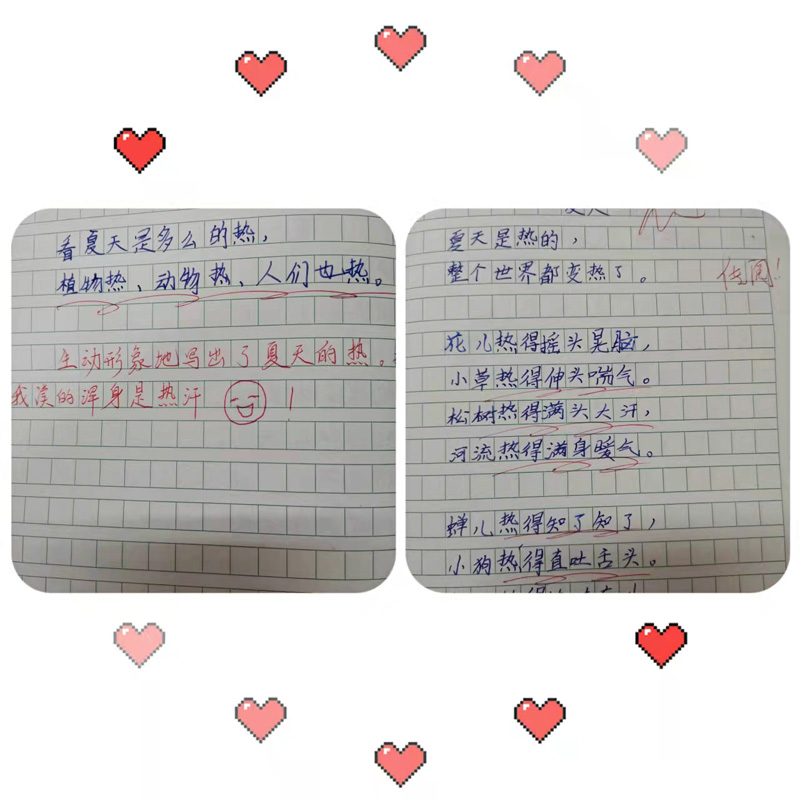 看夏天是多么的热，
植物热、动物热、人们也热。
生动形象地写出了夏天的热。
我渍的浑身是热汗
夏天是热的，
整个世界都变热了。
佳阅！
花儿热得摇头晃脑，
小草热得伸头喘气。
松树热得满头大汗，
河流热得满身暖气。
蝉儿热得知了知了，
小狗热得直吐舌头。